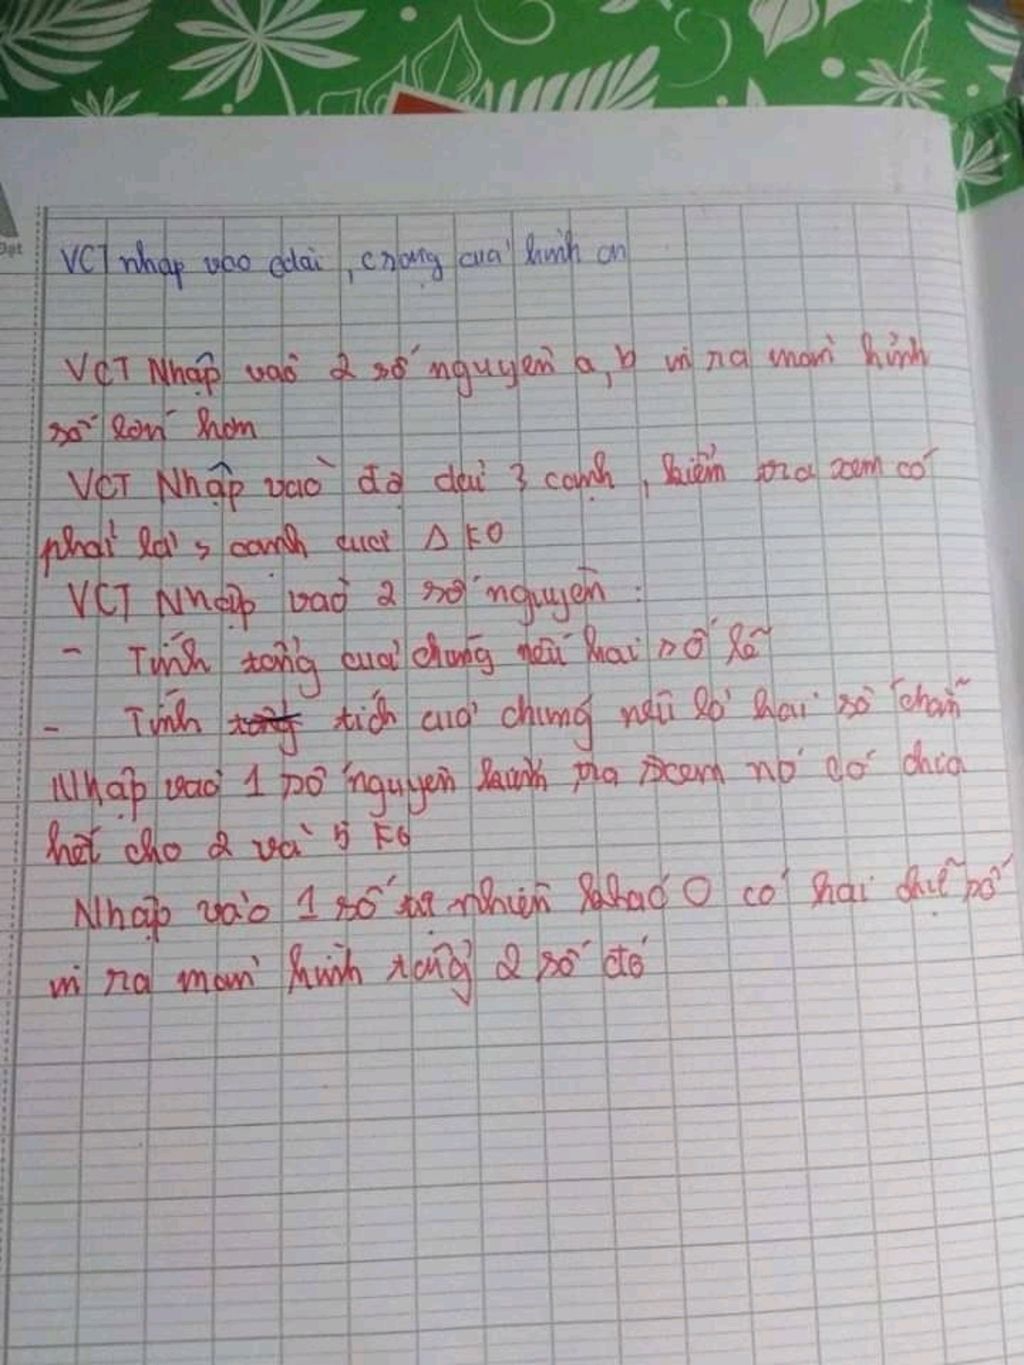 VCT nhập vao cdai, crộng cua' hình cn
VCT Nhập vaò 2 số nguyên a, b in ra man hình
số lớn hơn
VCT Nhập vaò độ dai 3 canh, kiểm tra xem có
phải là 3 canh cuả Δ KO
VCT Nhập vaò 2 số nguyên :
- Tính tổng cuả chúng nếu hai số lẻ
- Tính tích cuả chúng nếu là hai số chẵn
Nhập vaò 1 số nguyên kiểm tra xem nó có chia
hết cho 2 và 5 KO
Nhập vào 1 số tự nhiên khác 0 có hai chữ số
in ra man hình tổng 2 số đó